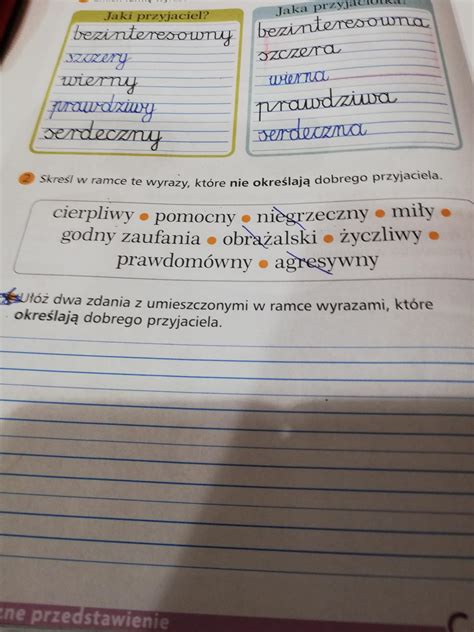 Jaki przyjaciel?
bezinteresowny
szczery
wierny
prawdziwy
serdeczny
Jaka przyjaciółka?
bezinteresowna
szczera
wierna
prawdziwa
serdeczna
2 Skreśl w ramce te wyrazy, które nie określają dobrego przyjaciela.
cierpliwy • pomocny • niegrzeczny • miły •
godny zaufania • obrażalski • życzliwy •
prawdomówny • agresywny
Ułóż dwa zdania z umieszczonymi w ramce wyrazami, które
określają dobrego przyjaciela.
zne przedstawienie